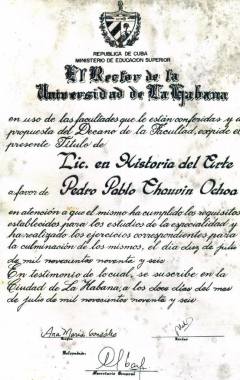 REPUBLICA DE CUBA
MINISTERIO DE EDUCACION SUPERIOR
El Rector de la
Universidad de La Habana
en uso de las facultades que le están conferidas y a
propuesta del Decano de la Facultad, expide el
presente Título de
Lic. en Historia del Arte
a favor de Pedro Pablo Chouvin Ochoa
en atención a que el mismo ha cumplido los requisitos
establecidos para los estudios de la especialidad y
ha realizado los ejercicios correspondientes para
la culminación de los mismos, el día diez de julio
de mil novecientos noventa y seis
En testimonio de lo cual, se suscribe en la
Ciudad de La Habana, a los doce días del mes
de julio de mil novecientos noventa y seis
Ana María González
Decano
Rector
Refrendado:
Secretario General